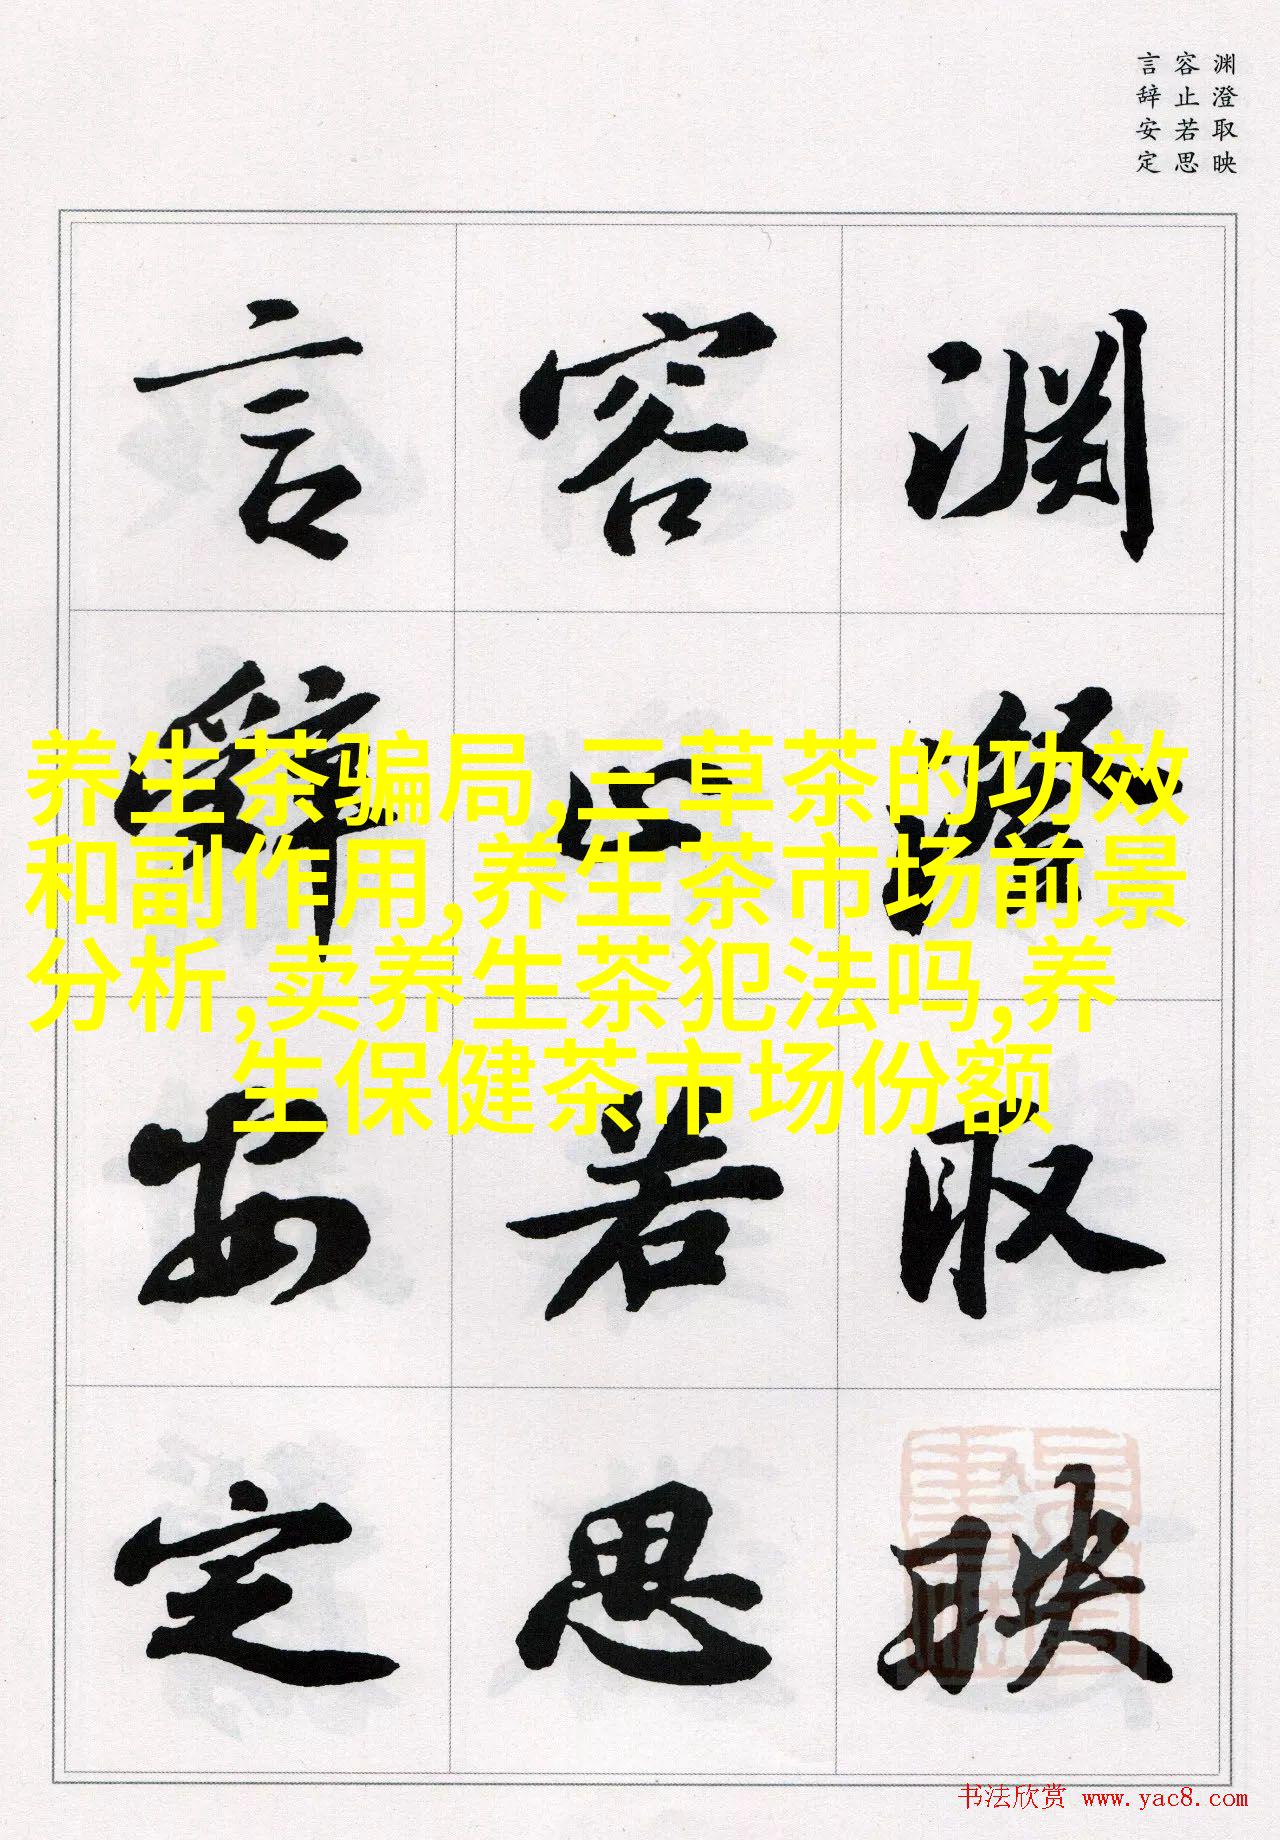 渊澄取映
容止若思
言辞安定
渊澄取映
容止若思
言辞安定
养生茶骗局,三草茶的功效
和副作用,养生茶市场前景
分析,卖养生茶犯法吗,养
生保健茶市场份额
书法欣赏 www.yac8.com